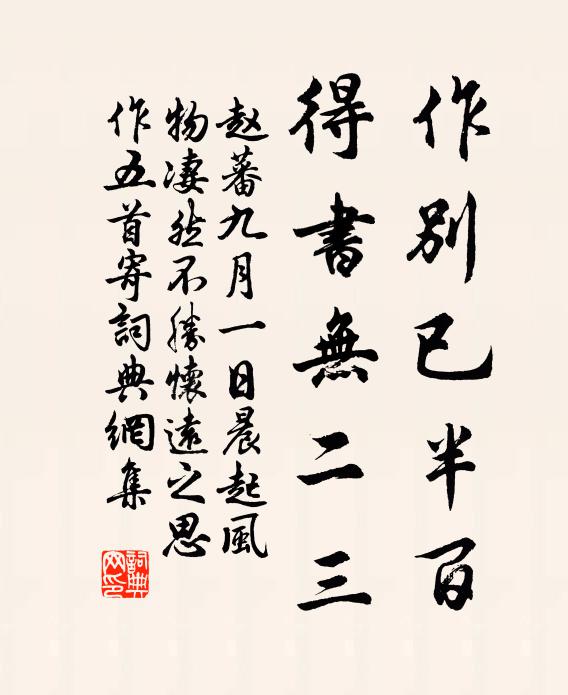 作别已半百
得書無二三
赵蕃九月一日晨起風
物淒然不勝懷遠之思
作五首寄詞典網集
詞典
网印